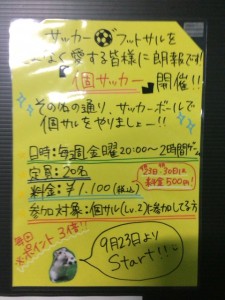 サッカー フットサルを
こよなく愛する皆様に朗報です!
『個サッカー』開催!!
その名の通り、サッカーボールで
個サルをやりましょー!!
日時:毎週金曜20:00~2時間
定員:20名
9/23日・30日は
料金500円!
料金:¥1,100(税込)
参加対象:個サル(Lv.2)に参加してる方
毎回
ポイント3倍!!
9月23日より
Start!!